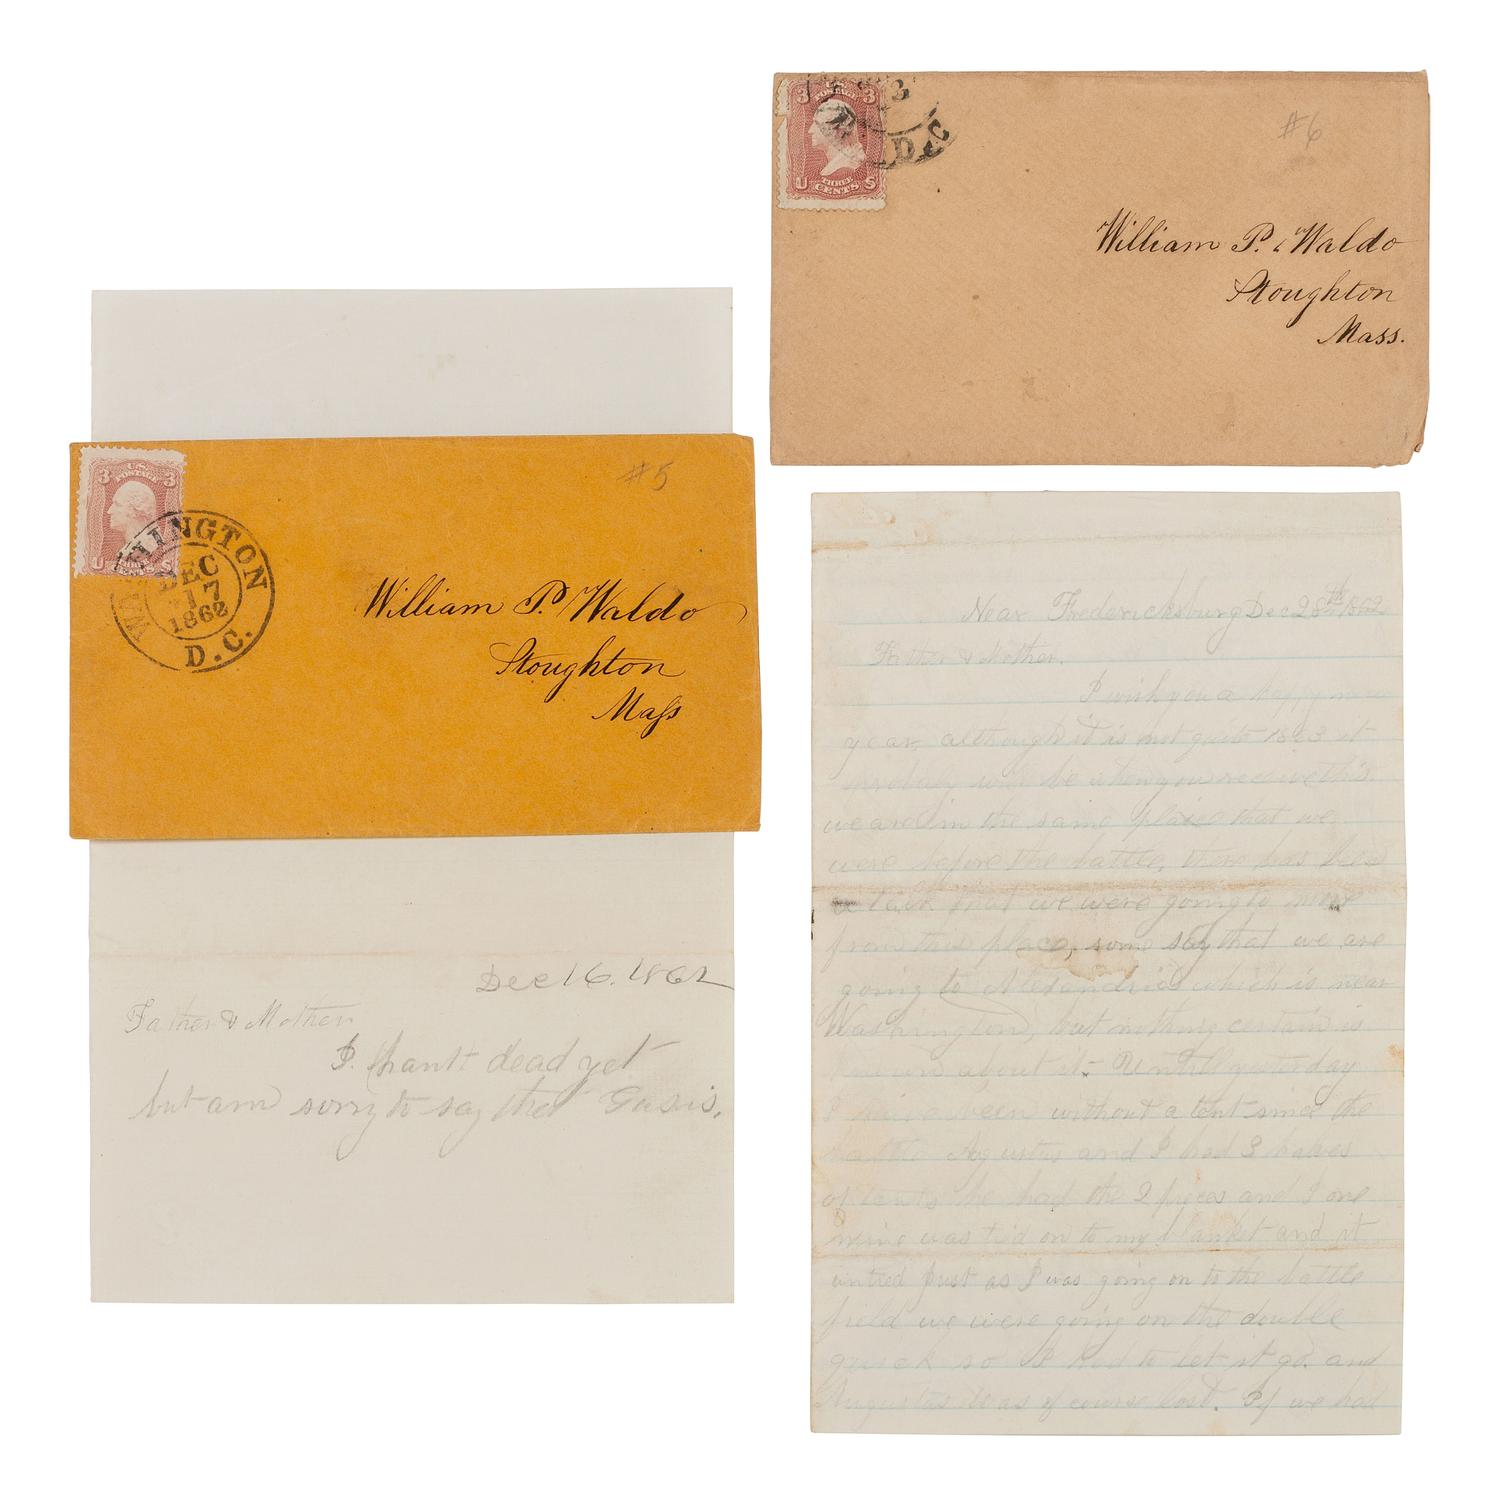 3 U.S. 3
POSTAGE
U THREE CENTS S
WASHINGTON
DEC
17
1862
D.C.
#5
William P. Waldo
Stoughton
Mass
Dec 16. 1862
Father & Mother
I. hant dead yet
but am sorry to say that Gus is.
3 U.S. 3
POSTAGE
U THREE CENTS S
D.C
#6
William P. Waldo
Stoughton
Mass.
Near Fredericksburg Dec 28th 1862
Father & Mother.
I wish you a happy new
year, although it is not quite 1863 it
probaly will be when you receive this.
we are in the same place that we
were before the battle, there has been
a talk that we were going to move
from this place, some say that we are
going to Alexandria which is near
Washington, but nothing certain is
known about it. Untill yesterday
I have been without a tent since the
battle Augustus and I had 3 halves
of tents he had the 2 pieces and I one
mine was tid on to my blanket and it
untied just as I was going on to the battle
field we were going on the double
quick so I had to let it go. and
Augustus was of course lost. If we had